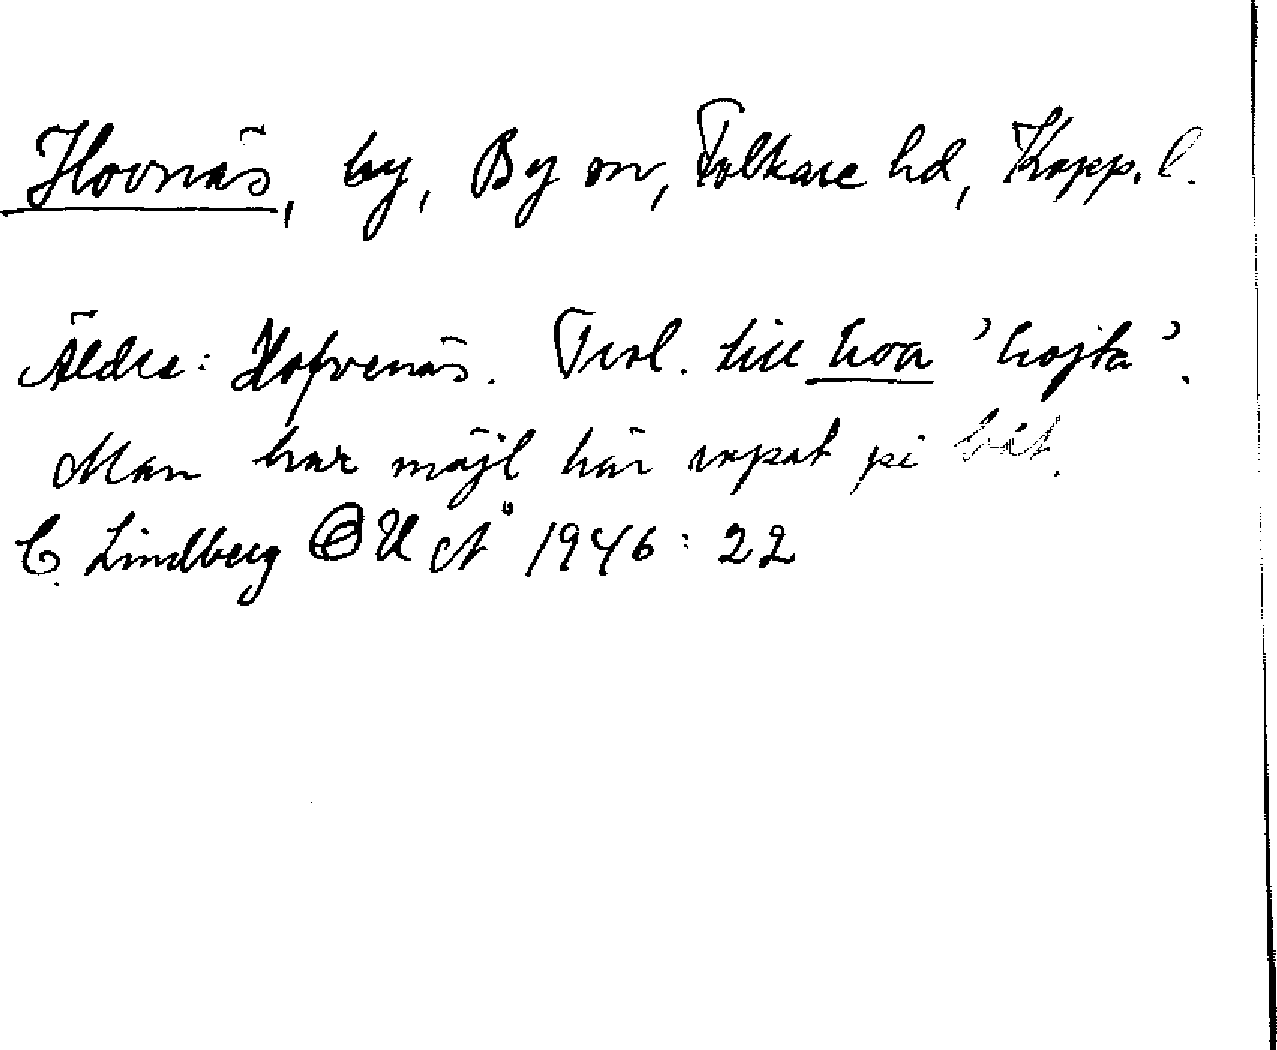 Hovnäs, by, By sn, Folkare hd, Kopp. l.
Äldre: Hofvenäs. Trol. till hoa 'hojta'.
Man har möjl här ropat på båt.
C. Lindberg OUÅ 1946: 22